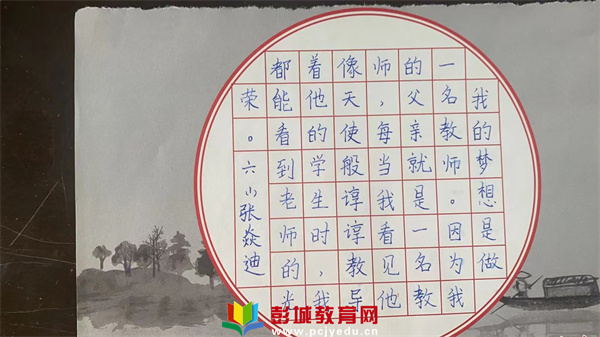 我的梦想是做
一名教师。因为我
的父亲就是一名教
师，每当我看见他
像天使般谆谆教导
着他的学生时，我
都能看到老师的光
荣。六小张焱迪
彭城教育网
www.pcjyedu.cn